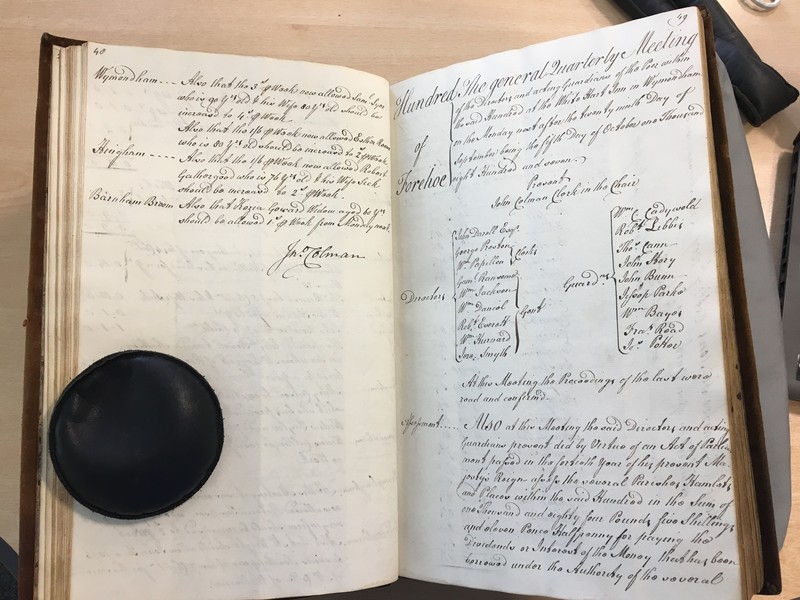 48
Wymondham ---- Also that the 3s. p Week now allowed Saml.
who is 90 Yrs. old & his Wife 80 Yrs. old should be
increased to 4s. p Week.
Also that the 1/6 p Week now allowed Esther
who is 80 Yrs. old should be increased to 2s. p Week
Heigham ---- Also that the 1/6 p Week now allowed Robert
Gathergood who is 76 Yrs. old & his Wife Sick
should be increased to 2s. p Week.
Barnham Broom Also that Goward Widow aged 60 Yrs.
should be allowed 1s. p Week from Monday next.
Jno. Colman
49
Hundred of Forehoe
The general Quarterly Meeting
of the Directors and acting Guardians of the Poor within
the said Hundred at the White Hart Inn in Wymondham
on the Monday next after the twenty ninth Day of
September being the fifth Day of October one Thousand
eight Hundred and seven.
Present
John Colman Clerk in the Chair
Directors
John Darell Esqr.
George Preston
Wm. Papillon
Clerks
Saml. Ransome
Wm. Jackson
Wm. Daniel
Robt. Everett
Wm. Hurnard
Jno. Smyth
Gent
Guardns.
Wm. Cadywold
Robt. Tibbis
Thos. Cann
John Story
John Bunn
Jessop Parke
Wm. Bayes
Fras. Read
Jos. Potter
At this Meeting the Proceedings of the last were
read and confirmed.
Assessment ---- Also at this Meeting the said Directors and acting
Guardians present did by Virtue of an Act of Parlia-
ment passed in the fortieth Year of his present Ma-
jestys Reign assess the several Parishes Hamlets
and Places within the said Hundred in the Sum of
one Thousand and eighty four Pounds five Shillings
and eleven Pence Halfpenny for paying the
Dividends or Interest of the Money that has been
borrowed under the Authority of the several